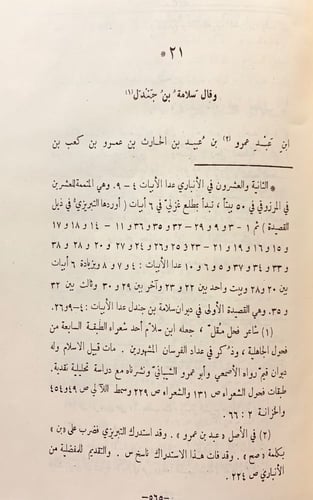 * ٢١
وقال سلامةُ بنُ جَنْدَل (١)
ابنِ عَبْدِ عمرو (٢) بن عُبيد بن الحارث بن عمرو بن كعب بن
* الثانية والعشرون في الأنباري عدا الأبيات ٤ – ٩. وهي المتممة للعشرين
في المرزوقي في ٥٠ بيتاً، تبدأ بمطلع غزليّ في ٦ أبيات ( أوردها التبريزي في ذيل
القصيدة ) ثم ١ – ٣ و ٩ و ٢٩ – ٣٢ و ٣٥ و ٣٦ و ١١ – ١٤ و ١٨ و ١٧
و ١٥ و ١٦ و ١٩ و ٢١ – ٢٣ و ٢٥ و ٢٦ و ٢٤ و ٢٧ و ٢٠ و ٢٨ و ٣٨
و ٣٣ و ٣٤ و ٣٧ و ٥ و ٦ و ١٠ عدا الأبيات : ٤ و ٧ و ٨ وبزيادة ٦ أبيات
بين ٢٠ و ٢٨ وبيت واحد بين ٢٢ و ٢٣ وآخر بين ٢٩ و ٣٠ وثالث بين ٣٢
و ٣٥. وهي القصيدة الأولى في ديوان سلامة بن جندل عدا الأبيات : ٤ – ٩ و ٢٦.
(١) شاعر فحل مُقلّ، جعله ابن سلّام أحد شعراء الطبقة السابعة من
فحول الجاهلية، وذُكر في عداد الفرسان المشهورين. مات قبيل الاسلام وله
ديوان قيّم رواه الأصمعي وأبو عمرو الشيباني ونشرناه مع دراسة تحليلية نقدية.
طبقات فحول الشعراء ص ١٣١ والشعراء ص ٢٢٩ وسمط اللآلي ص ٤٩ و ٤٥٤
والخزانة ٢ : ٦٦ .
(٢) في الأصل « عبد بن عمرو » . وقد استدرك التبريزي فضرب على « بن »
بكلمة « صح » . وقد فات هذا الاستدراك ناسخ س . والتقديم للمفضلية من
الأنباري ص ٢٢٤ .
– ٥٦٥ –